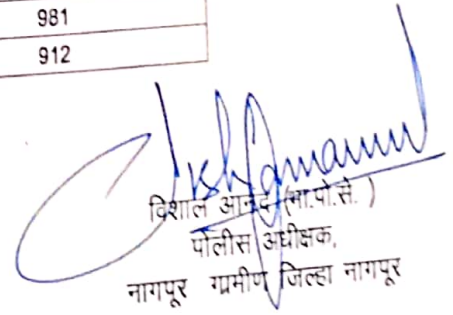 981
912
विशाल आनंद (भा.पो.से. )
पोलीस अधीक्षक,
नागपूर ग्रामीण जिल्हा नागपूर